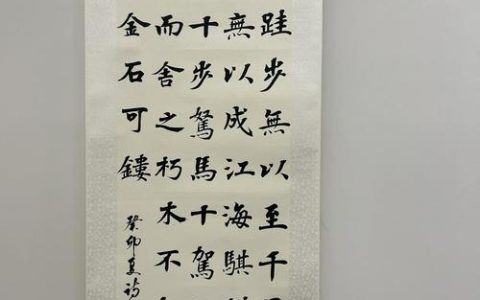 跬步無以至千里
無以成江海騏
十步駑馬十駕
而舍之朽木不
金石可鏤
癸卯夏